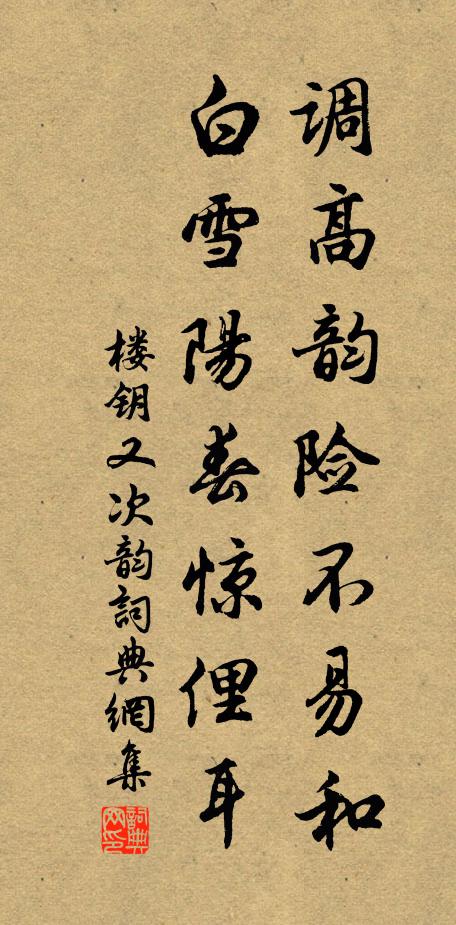 调高韵险不易和
白雪陽春惊俚耳
楼钥又次韵詞典網集
詞典网印